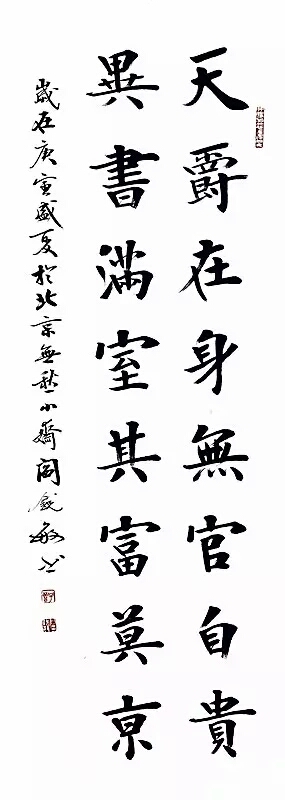 天爵在身無官自貴
異書滿室其富莫亰
歲在庚寅盛夏於北京無愁小齋閻銳敏书